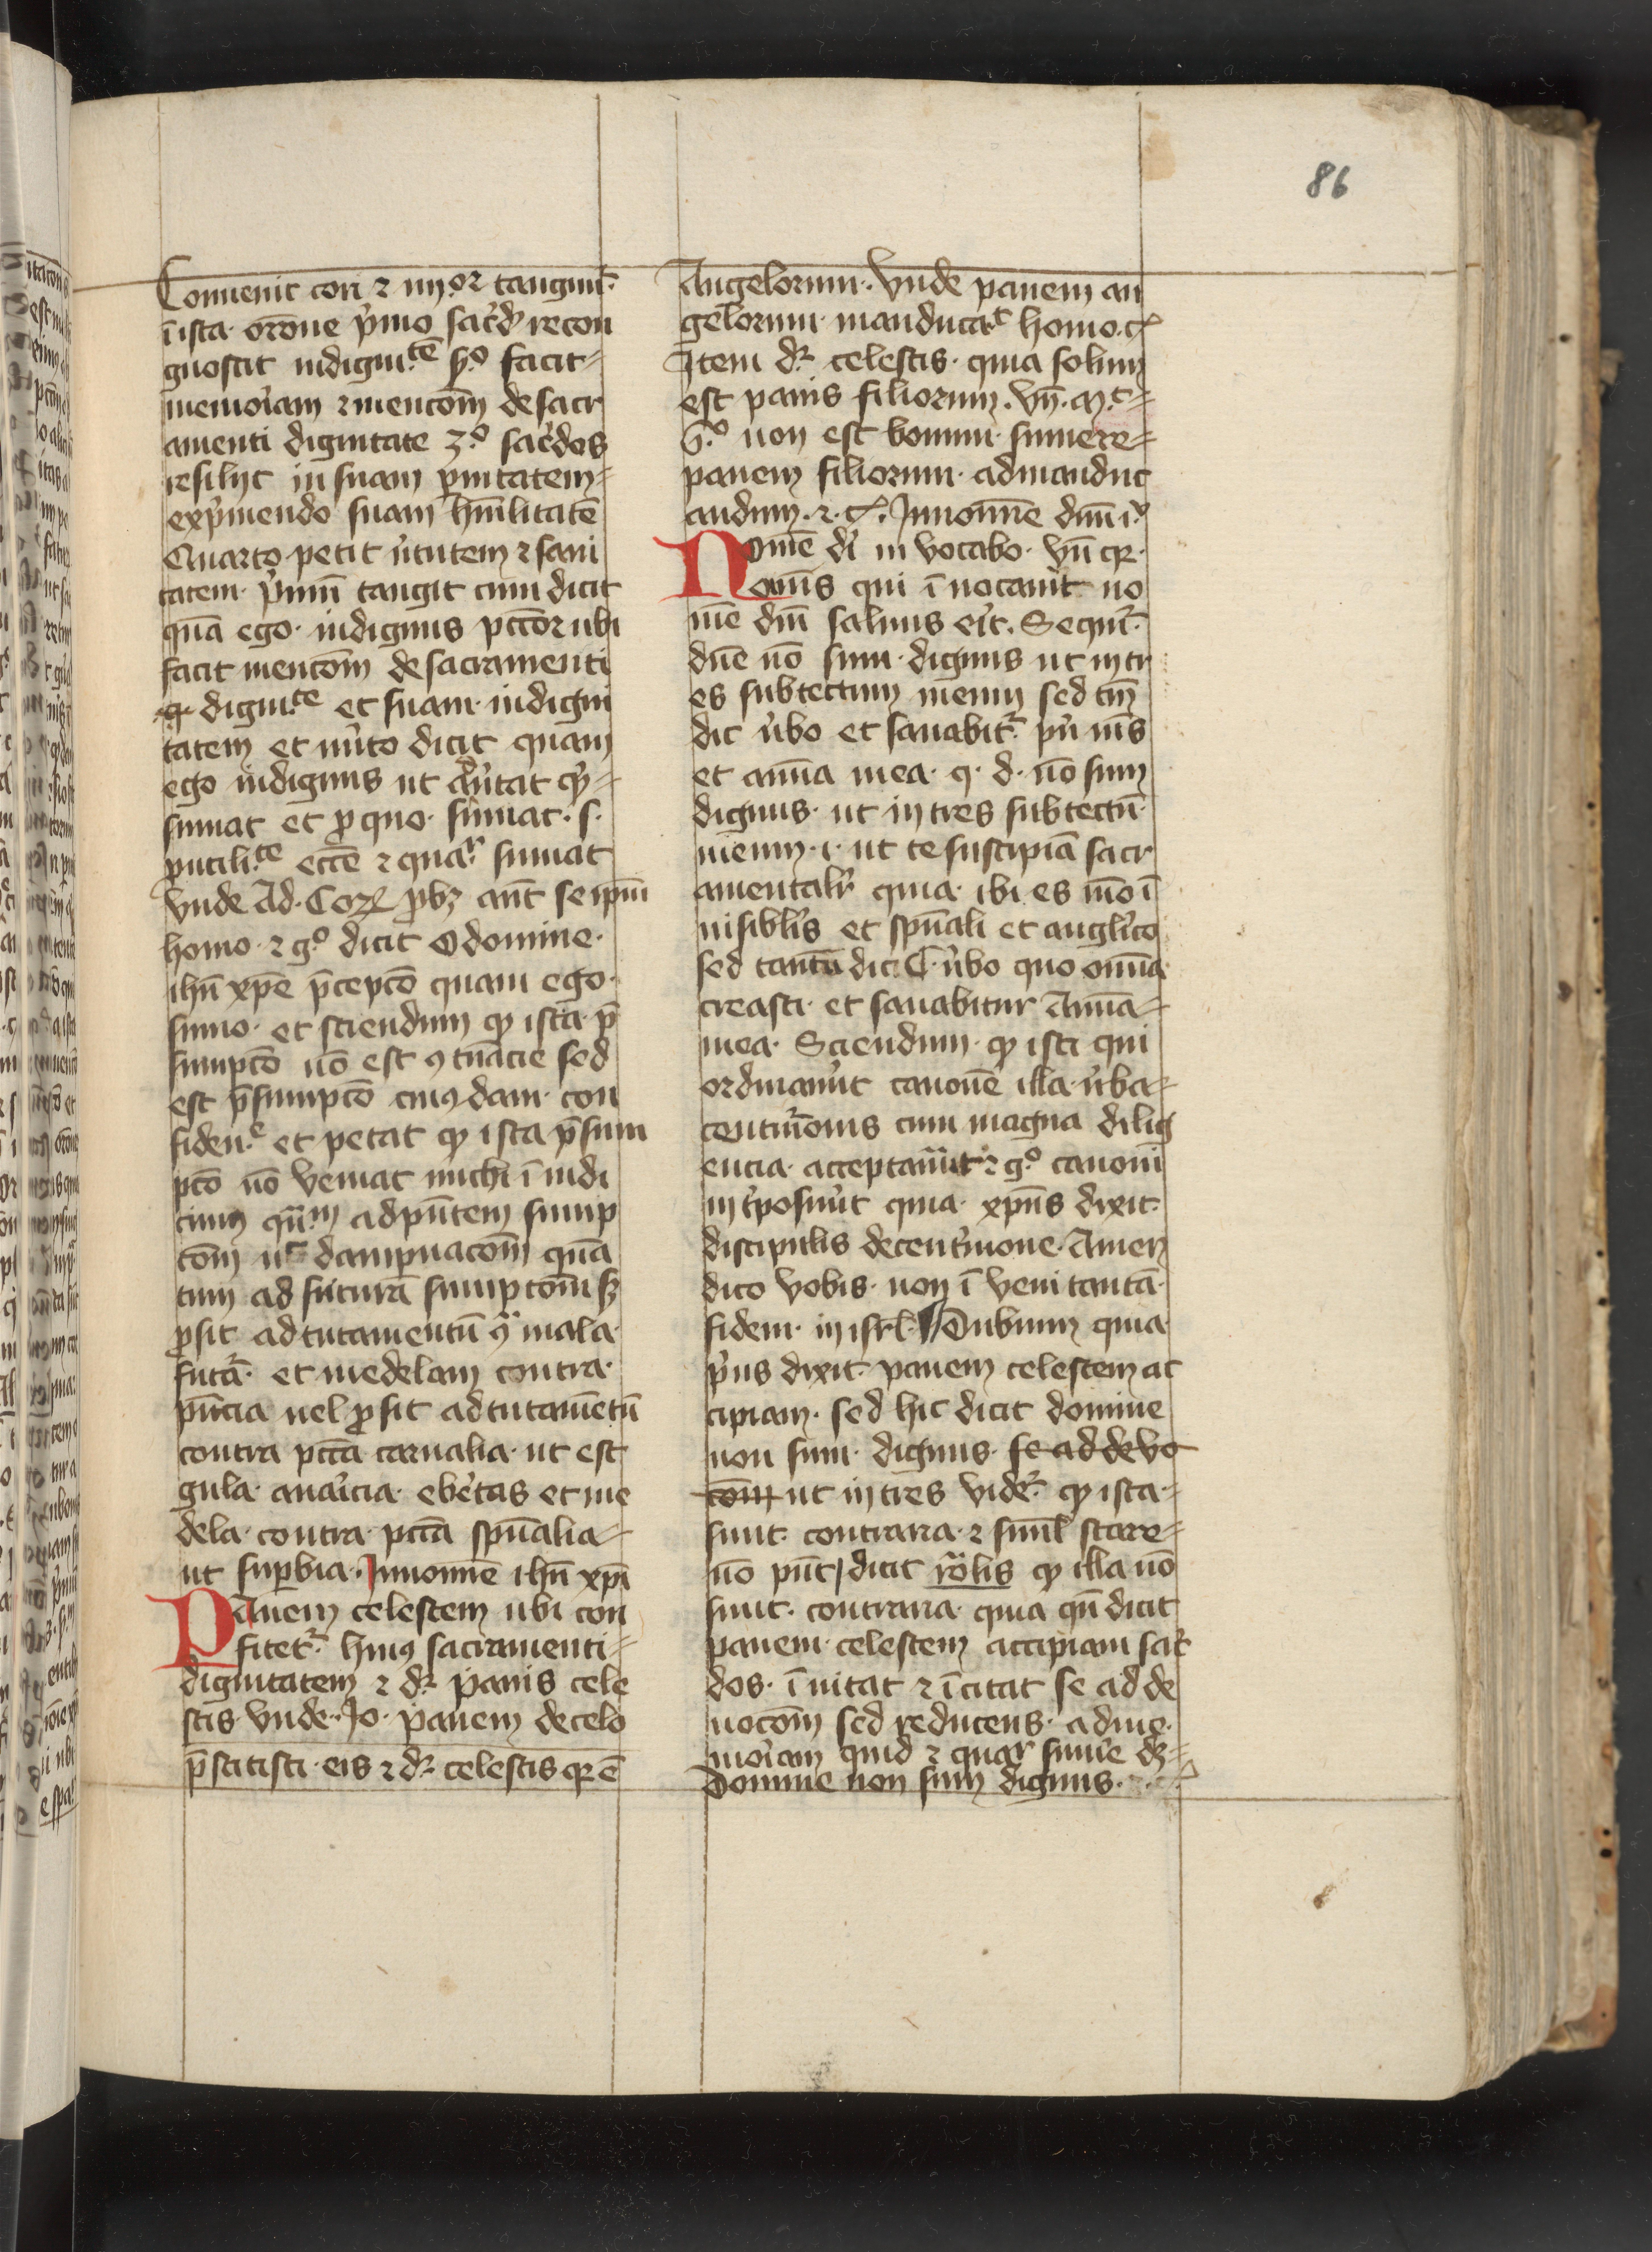 86
Conuenit cori ⁊ iiijor tangunt᷑
ī ista orōne p̓mo sac̓dͦ recon
gnoscit indignitatē sͦ facit
memoriam ⁊ mencōm de sacr
amenti dignitate 3º sac̓dos
resilijt in suam
exp̓mendo suam hūilitatē
Quarto petit u̓tutem ⁊ sani
tatem p̓mū tangit cum dicit
quā ego indignus pctōr ubi
facit mencōm de sacramenti
dignite et suam indigni
tatem et mito dicit quam
ego indignus ut
sumat et ꝓ quo sumat s
⁊ quar sumat
vnde Ad Corꝝ ꝓbꝫ aut̄ seip̄m
homo ⁊ gº dicit O domine
ihū xp̄e p̄cepcō quam ego
sumo et sciendum ꝙ ista p̄
sumpcō nō est ꝯtumacie sed
est p̄sumpcō cuiꝰdam con
fidene et petat ꝙ ista p̄sum
pcō nō veniat michi ī iudi
cium qū̄m ad pn̄tem sump
cōm uel dampnacōm quā
tum ad futurā sumpcōm sꝫ
ꝓsit ad tutamentū ꝯ mala
futā et medelam contra
pn̄cia uel ꝓsit ad tutamētū
contra pctā carnalia ut est
gula auaricia eb̓etas et me
dela contra pctā sp̄ualia
ut suꝑbia In nomine ihū xp̄i
PAnem celestem ubi con
fitet᷑ huiꝰ sacramenti
dignitatem ⁊ dr̄ panis cele
stis vnde Jo panem de celo
p̄stitisti eis ⁊ dr̄ celestis qr̄ ē
Angelorum vnde panem an
gelorum manducat homo ꝛc
Item dr̄ celestis quia solum
est panis filiorum vn̄ mt
non est bonum sumere
panem filiorum ad manduc
andum ⁊ ꝛc In nomīe dm̄i
Nomē dī in vocabo vn̄ qr̄
omīs qui ī uocauit no
mē dnī saluus eīt Sequit᷑
dn̄e nō sum dignus ut intr
es sub tectum meum sed tm̄
dic u̓bo et sanabit᷑ pu̓ m̄s
et anīa mea q d nō sum
dignus ut intres sub tectū
meum i ut te suscipiā sacr
amentalr̄ quia ibi es mō ī
uisiblis et sp̄uali et anglico
sed tantū dic u̓bo quo omīa
creasti et sanabitur Anīa
mea Sciendum ꝙ isti qui
ordinau̓t canonē illa u̓ba
centu̓ionis cum magna dilig
encia acceptauīt ⁊ gº canonī
int̓posuu̓t quia xp̄us dixit
discipulis de centu̓ione Amen
dico vobis non ī veni tantā
fidem in isrl̄ Dubium quia
p̓us dixit panem celestem ac
cipiam sed hic dicit domine
non sum dignus se ad deuo
cōm ut intres videt᷑ ꝙ ista
sunt contraria ⁊ simul stare
nō pn̄t dicit ꝙ illa nō
sunt contraria quia qn̄ dicit
panem celestem accipiam sac̓
dos ī uitat ⁊ ī citat se ad de
uocōm sed reducens ad me
moriam quid ⁊ quar̄ sumē dꝫ
Domine non sum dignus